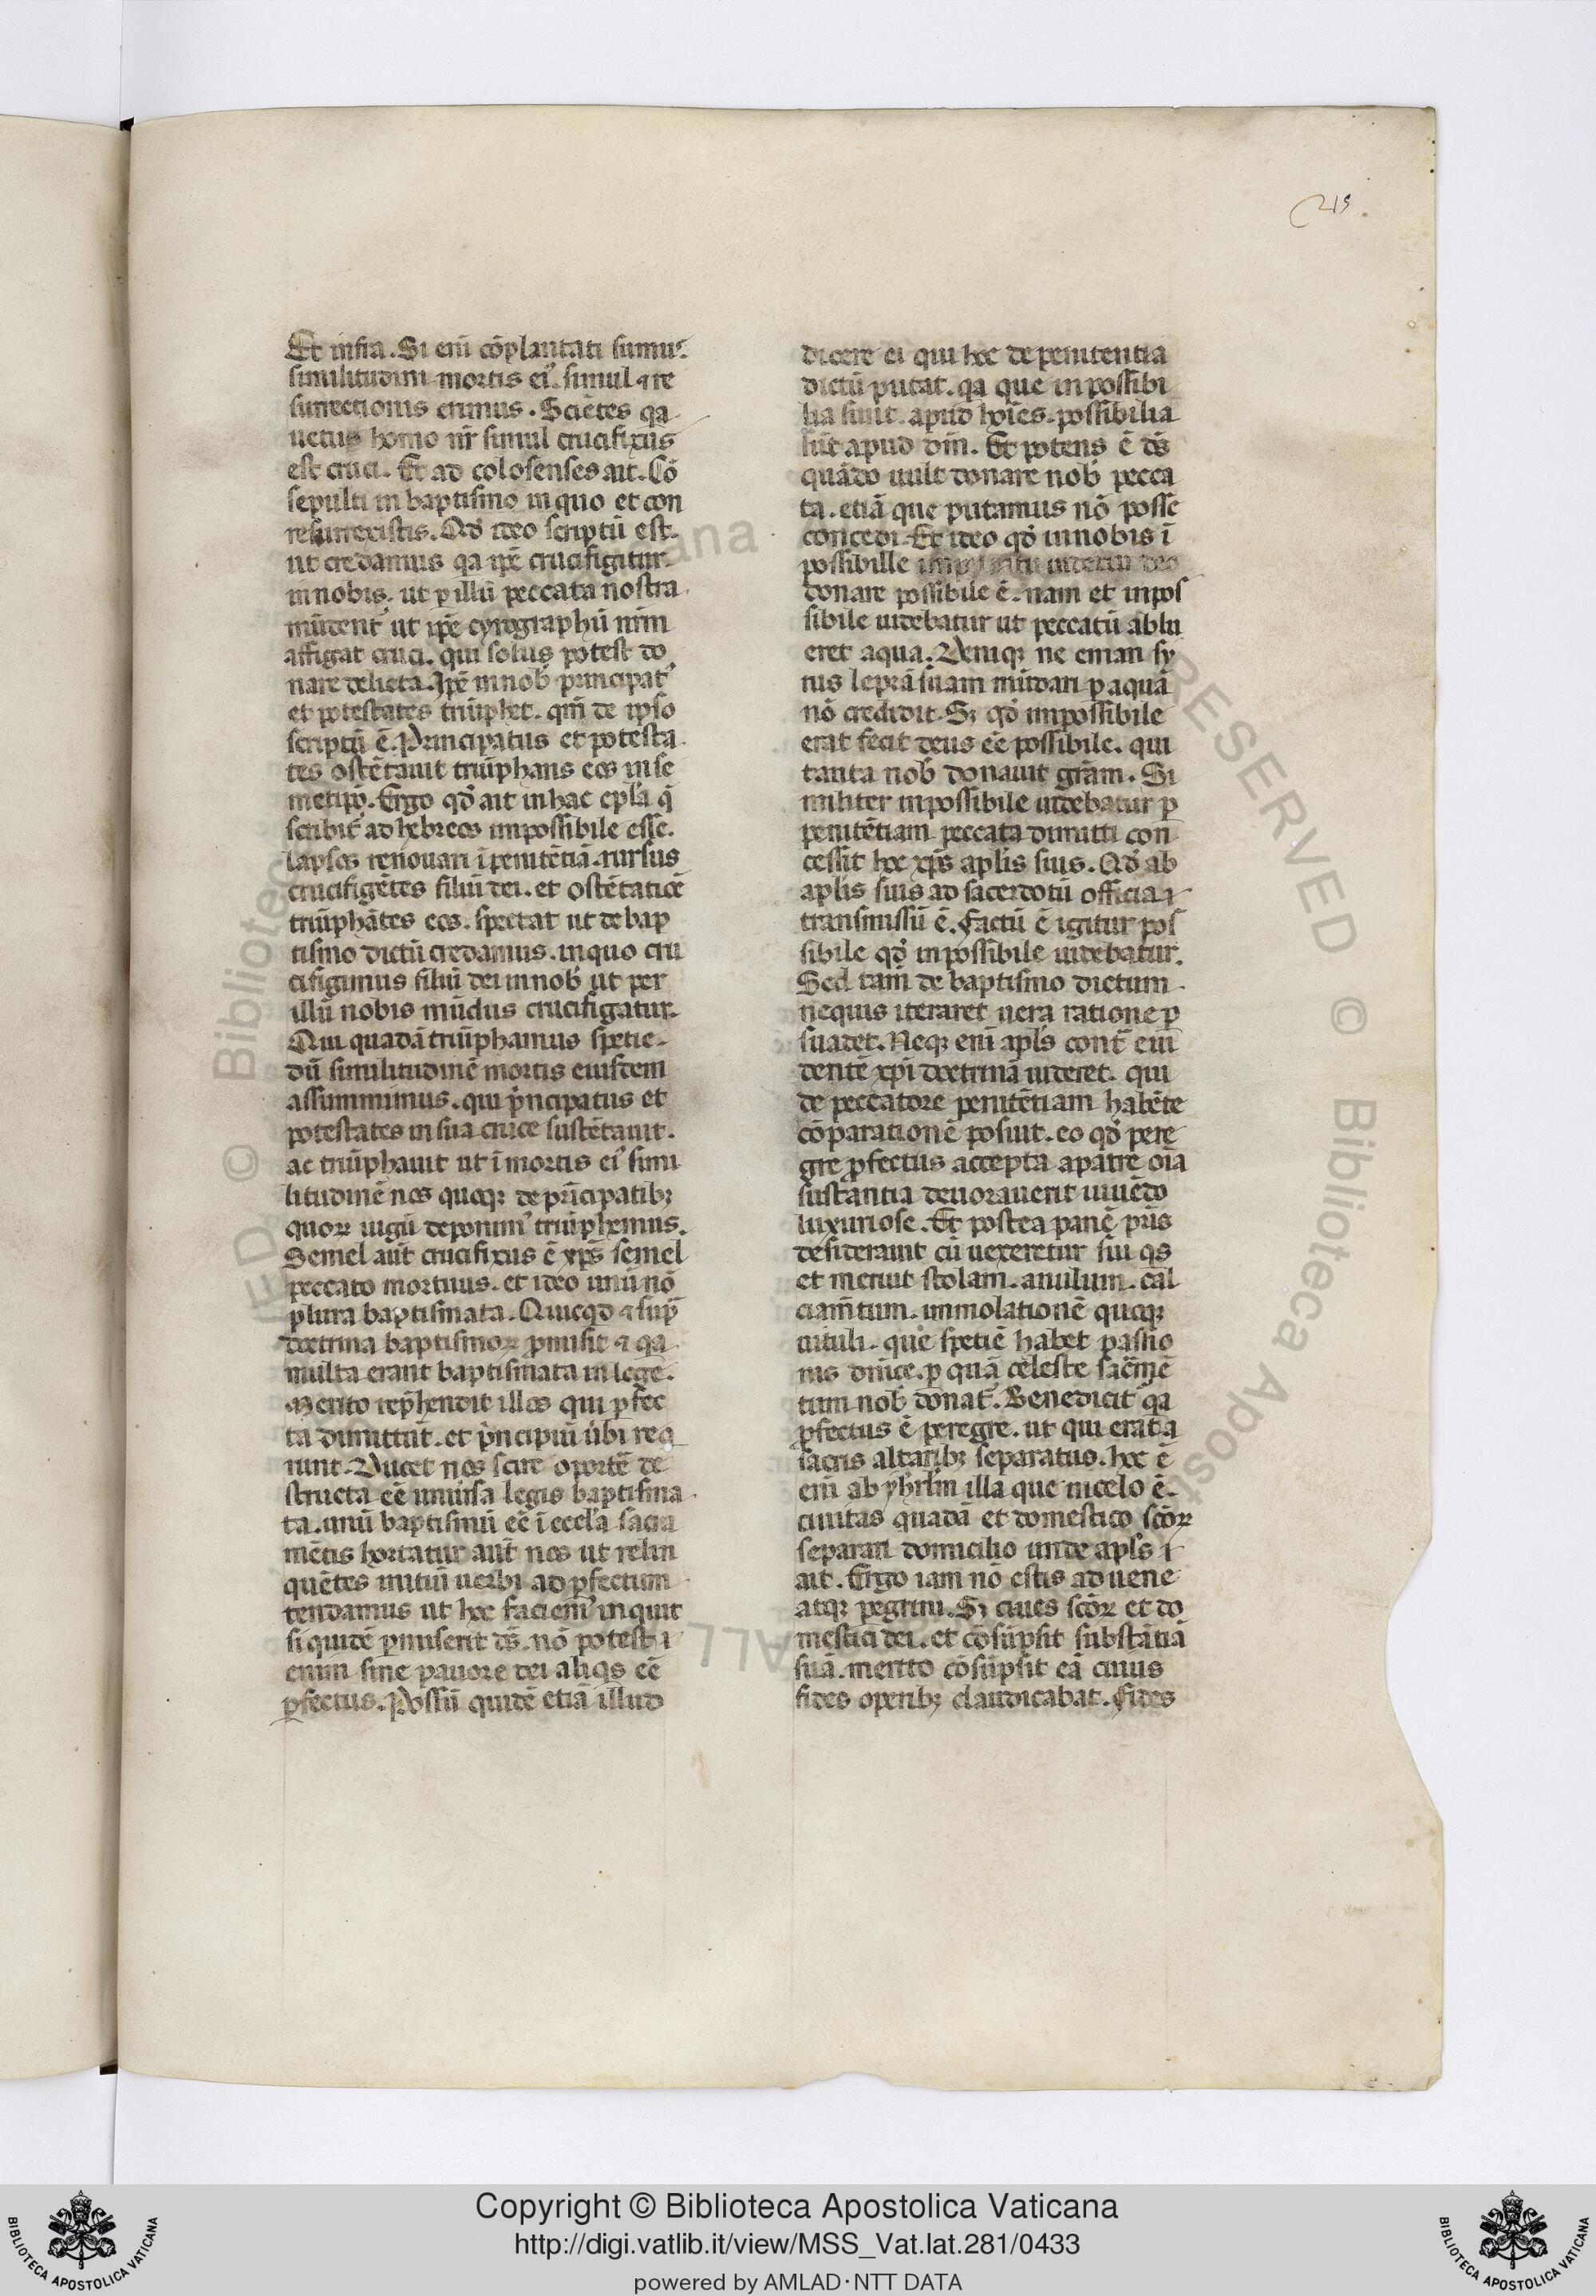 215
Et infra. Si eni͂ cõplantati sumus
similitudini mortis ei᾽ simul ⁊ re
surrectionis erimus. Sciẽtes qa
uetus homo nr̃ simul crucifixus
est cruci. Et ad colosenses ait. Cõ
sepulti in baptismo in quo et con
resurrexistis. Qđ ideo scriptũ est.
ut credamus qa ip̃e crucifigitur
in nobis. ut ꝑ illũ peccata nostra
mũdent᾽ ut ip̃e cyrographũ nr̃m
affigat cruci. qui solus potest do
nare delicta. Ip̃e in nob̃ principat᾽
et potestates triũphet. qm̃ de ipso
scriptũ ẽ. Principatus et potesta
tes ostẽtauit triũphans eos in se
metip̃o. Ergo qđ ait in hac ep̃la q̃
scribit᾽ ad hebreos impossibile esse.
lapsos renouari ĩ penitẽtiã rursus
crucifigẽtes filiũ dei. et ostẽtatiõe
triũphãtes eos. spectat ut de bap
tismo dictũ credamus. in quo cru
cifigimus filiũ dei in nob̃ ut per
illũ nobis mũdus crucifigatur.
Qui quadã triũphamus spetie
dũ similitudinẽ mortis eiusdem
assummimus. qui p̃ncipatus et
potestates in sua cruce sustẽtauit.
ac triũphauit ut ĩ mortis ei᾽ simi
litudinẽ nos quoqꝫ de prĩcipatibꝫ
quoꝝ iugũ deponim᾽ triũphemus.
Semel aũt crucifixus ẽ xp̃s semel
peccato mortuus. et ideo unũ nõ
plura baptismata. Quicqđ ⁊ sup̃
doctrina baptismoꝝ p̃misit ⁊ qa
multa erant baptismata in lege.
Merito rep̃hendit illos qui ꝑfec
ta dimittũt. et p̃ncipiũ ubi req̃
runt. Ducet nos scire oportẽ de
structa eẽ uniũsa legis baptisma
ta. unũ baptismũ eẽ ĩ eccl̃a sacra
mẽtis hortatur aũt nos ut relin
quẽtes initiũ uerbi ad ꝑfectum
tendamus ut hoc faciem᾽ inquit
si quidẽ ꝑmiserit d̃s. nõ potest
enim sine pauore dei aliqs eẽ
ꝑfectus. Possũ quidẽ etiã illud
dicere ei qui hoc de penitentia
dictũ putat. qa que inpossibi
lia sunt. apud hoĩes. possibilia
sũt apud dm̃. Et potens ẽ d̃s
quãdo uult donare nob̃ pecca
ta. etiã que putamus nõ posse
concedi. Et ideo qđ in nobis ĩ
possibille uidetur deo
donare possibile ẽ. nam et inpos
sibile uidebatur ut peccatũ ablu
eret aqua. Deniqꝫ ne eman sy
rus leprã suam mũdari ꝑ aquã
nõ credidit. Sꝫ qđ impossibile
erat fecit deus eẽ possibile. qui
tanta nob̃ donauit gr̃am. Si
militer inpossibile uidebatur ꝑ
penitẽtiam peccata dimitti con
cessit hoc xp̃s apl̃is suis. Qđ ab
apl̃is suis ad sacerdotũ officia
transmissũ ẽ. Factũ ẽ igitur pos
sibile qđ inpossibile uidebatur.
Sed tam̃ de baptismo dictum
nequis iteraret uera ratione ꝑ
suadet. Neqꝫ eni͂ apl̃s cont̃ eui
dentẽ xp̃i doctrinã uideret. qui
de peccatore penitẽtiam habẽte
cõparationẽ posuit. eo qđ pere
gre ꝓfectus accepta a patre oĩa
sustantia deuorauerit uiuẽdo
luxuriose. Et postea panẽ pr̃is
desiderauit cũ uexeretur sili qs
et meruit stolam. anulum. cal
ciam̃tum. immolationẽ quoqꝫ
uituli. que spetiẽ habet passio
nis dnĩce. ꝑ quã celeste sac̃mẽ
tum nob̃ donat᾽. Benedicit᾽ qa
ꝓfectus ẽ peregre. ut qui erat a
sacris altaribꝫ separatus. hoc ẽ
eni͂ ab yhrl̃m illa que in celo ẽ.
ciuitas quadã et domestico sc̃oꝝ
separari domicilio unde apl̃s
ait. Ergo iam nõ estis aduene
atqꝫ pegrini. Sꝫ ciues sc̃oꝝ et do
mestici dei. et cõsũpsit substãtiã
suã. merito cõsũpsit eã cuius
fides operibꝫ claudicabat. Fides
Copyright © Biblioteca Apostolica Vaticana
http://digi.vatlib.it/view/MSS_Vat.lat.281/0433
powered by AMLAD·NTT DATA